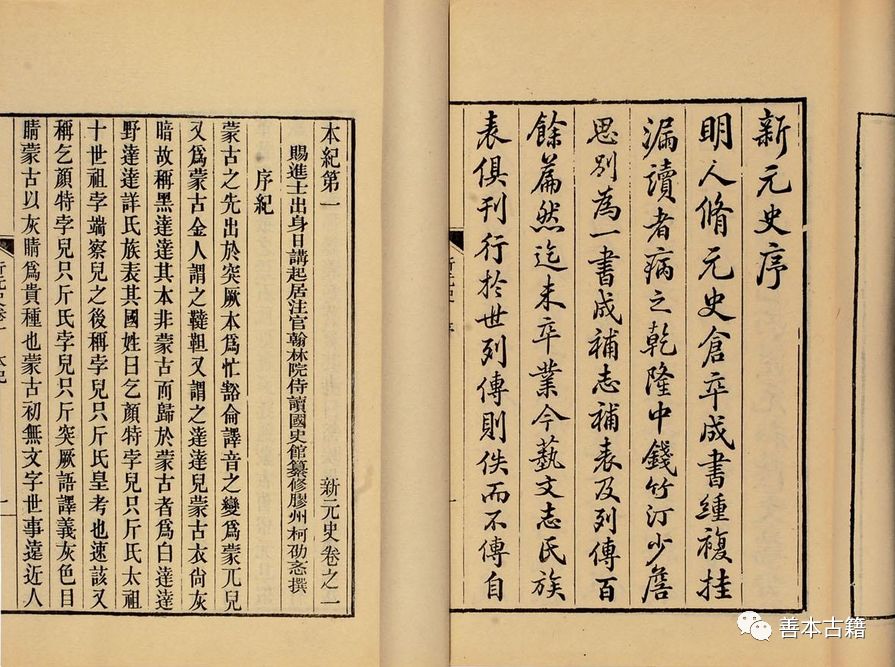 新元史序
明人脩元史倉卒成書緟複挂
漏讀者病之乾隆中錢竹汀少詹
思別為一書成補志補表及列傳百
餘篇然迄未卒業今藝文志氏族
表俱刊行於世列傳則佚而不傳自
本紀第一 新元史卷之一
賜進士出身日講起居注官翰林院侍讀國史館纂修膠州柯劭忞撰
序紀
蒙古之先出於突厥本爲忙豁侖譯音之變爲蒙兀兒
又爲蒙古金人謂之韃靼又謂之達達兒蒙古衣尙灰
暗故稱黑達達其本非蒙古而歸於蒙古者爲白達達
野達達詳氏族表其國姓曰乞顏特孛兒只斤氏太祖
十世祖孛端察兒之後稱孛兒只斤氏皇考也速該又
稱乞顏特孛兒只斤氏孛兒只斤突厥語譯義灰色目
睛蒙古以灰睛爲貴種也蒙古初無文字世事遠近人
善本古籍